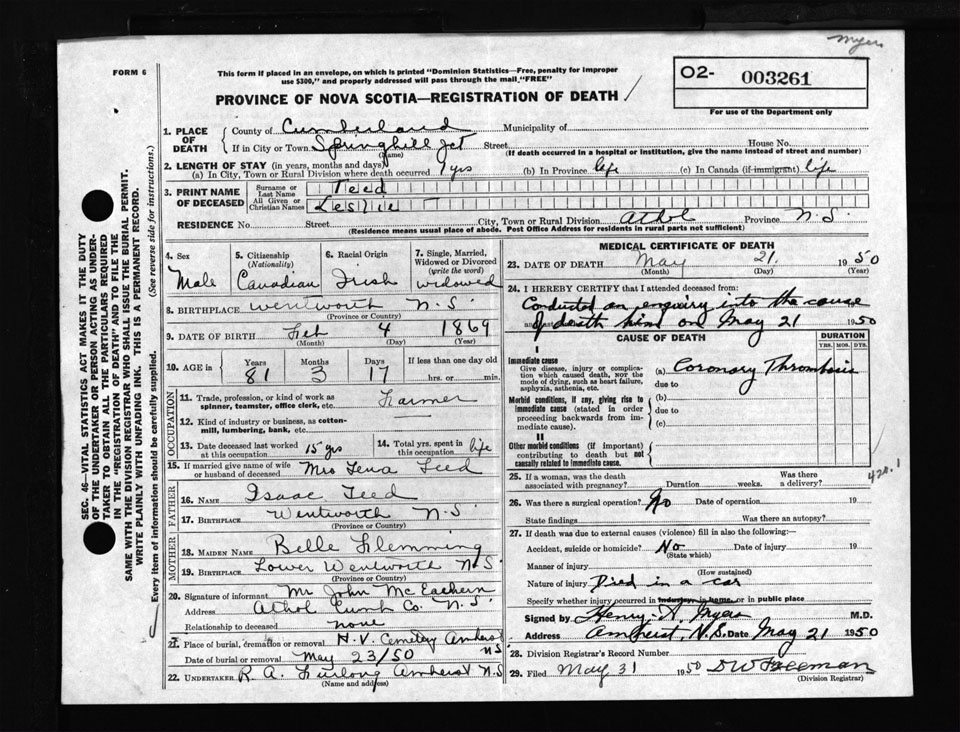 Myers
FORM 6
This form if placed in an envelope, on which is printed "Dominion Statistics—Free, penalty for improper
use $300," and properly addressed will pass through the mail, "FREE"
PROVINCE OF NOVA SCOTIA—REGISTRATION OF DEATH /
O2- 003261
For use of the Department only
SEC. 46—VITAL STATISTICS ACT MAKES IT THE DUTY
OF THE UNDERTAKER OR PERSON ACTING AS UNDER-
TAKER TO OBTAIN ALL THE PARTICULARS REQUIRED
IN THE "REGISTRATION OF DEATH" AND TO FILE THE
SAME WITH THE DIVISION REGISTRAR WHO SHALL ISSUE THE BURIAL PERMIT.
WRITE PLAINLY WITH UNFADING INK. THIS IS A PERMANENT RECORD.
Every item of information should be carefully supplied. (See reverse side for instructions.)
1. PLACE OF DEATH { County of Cumberland Municipality of
If in City or Town Springhill Jct Street House No.
(Name) (If death occurred in a hospital or institution, give the name instead of street and number)
2. LENGTH OF STAY (in years, months and days)
(a) In City, Town or Rural Division where death occurred yrs (b) In Province life (c) In Canada (if immigrant) life
3. PRINT NAME OF DECEASED { Surname or Last Name Teed
All Given or Christian Names Leslie
RESIDENCE No. Street City, Town or Rural Division Athol Province N.S.
(Residence means usual place of abode. Post Office Address for residents in rural parts not sufficient)
4. Sex 5. Citizenship (Nationality) 6. Racial Origin 7. Single, Married, Widowed or Divorced (write the word)
Male Canadian Irish widowed
8. BIRTHPLACE Wentworth N.S.
(Province or Country)
9. DATE OF BIRTH Feb 4 1869
(Month) (Day) (Year)
10. AGE in { Years Months Days If less than one day old
81 3 17 hrs. or min.
OCCUPATION
11. Trade, profession, or kind of work as spinner, teamster, office clerk, etc. Farmer
12. Kind of industry or business, as cotton-mill, lumbering, bank, etc.
13. Date deceased last worked at this occupation 15 yrs 14. Total yrs. spent in this occupation life
15. If married give name of wife or husband of deceased Mrs Lena Teed
FATHER
16. NAME Isaac Teed
17. BIRTHPLACE Wentworth N.S.
(Province or Country)
MOTHER
18. MAIDEN NAME Belle Flemming
19. BIRTHPLACE Lower Wentworth N.S.
(Province or Country)
20. Signature of informant Mr John McEachern
Address Athol Cumb Co. N.S.
Relationship to deceased none
21. Place of burial, cremation or removal H.V. Cemetery Amherst NS
Date of burial or removal May 23/50
22. UNDERTAKER R. A. Furlong Amherst N.S
(Name and address)
MEDICAL CERTIFICATE OF DEATH
23. DATE OF DEATH May 21. 1950
(Month) (Day) (Year)
24. I HEREBY CERTIFY that I attended deceased from:
Conducted an enquiry into the cause
of death him on May 21 1950
CAUSE OF DEATH DURATION
YRS. MOS. DYS.
I
Immediate cause
Give disease, injury or complica-
tion which caused death, NOT the
mode of dying, such as heart failure,
asphyxia, asthenia, etc.
(a) Coronary Thrombosis
due to
Morbid conditions, if any, giving rise to
immediate cause (stated in order
proceeding backwards from im-
mediate cause).
(b)
due to
(c)
II
Other morbid conditions (if important)
contributing to death but not
causally related to immediate cause.
420.1
25. If a woman, was the death associated with pregnancy? Duration weeks. Was there a delivery?
26. Was there a surgical operation? No Date of operation 19
State findings Was there an autopsy?
27. If death was due to external causes (violence) fill in also the following:
Accident, suicide or homicide? No Date of injury 19
(State which)
Manner of injury
(How sustained)
Nature of injury Died in a car
Specify whether injury occurred in industry, in home, or in public place
Signed by Henry A Myers M.D.
Address Amherst, N.S. Date May 21 1950
28. Division Registrar's Record Number
29. Filed May 31 1950 D W Freeman
(Division Registrar)